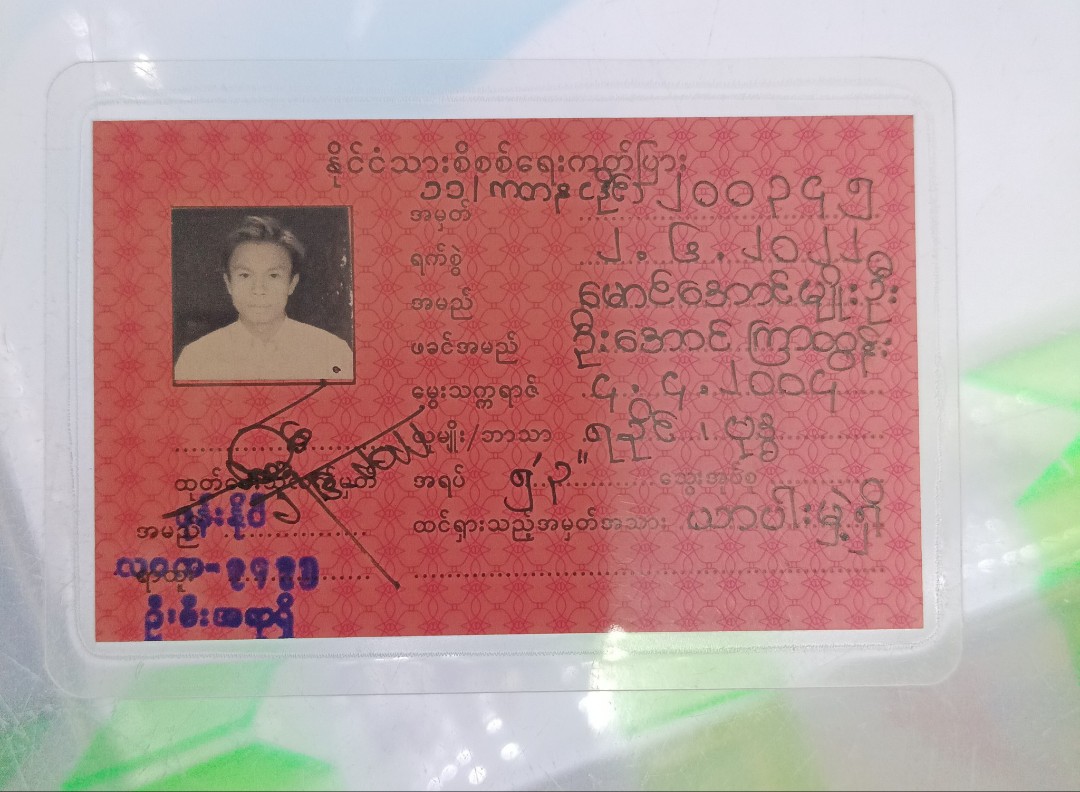 နိုင်ငံသားစိစစ်ရေးကတ်ပြား
အမှတ် ၁၁/ကတန(နိုင်)၂၀၀၃၄၅
ရက်စွဲ ၂.၆.၂၀၂၂
အမည် မောင်အောင်မျိုးဦး
ဖခင်အမည် ဦးအောင်ကြာထွန်း
မွေးသက္ကရာဇ် ၄.၄.၂၀၀၄
လူမျိုး/ဘာသာ ရခိုင်၊ ဗုဒ္ဓ
အရပ် ၅'၃" သွေးအုပ်စု
ထင်ရှားသည့်အမှတ်အသား ယာပါးမှဲ့ရှိ
အမည်
ဦးစီးအရာရှိ